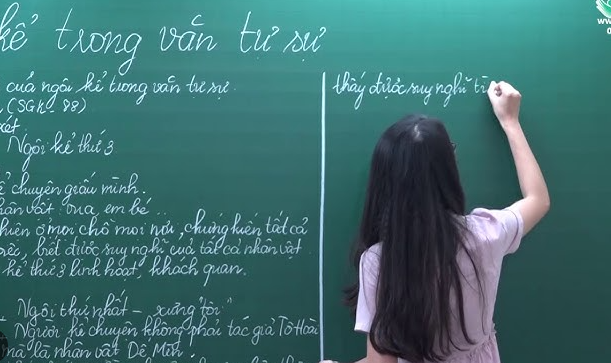 kể trong văn tự sự
của ngôi kể trong văn tự sự
(SGK - 88)
xét
Ngôi kể thứ 3
kể chuyện giấu mình.
nhân vật: vua, em bé...
hiện ở mọi chỗ mọi nơi, chứng kiến tất cả
việc, biết được suy nghĩ của tất cả nhân vật
kể thứ 3 linh hoạt, khách quan.
Ngôi thứ nhất - xưng "tôi"
Người kể chuyện không phải tác giả Tô Hoài
mà là nhân vật Dế Mèn.
thấy được suy nghĩ từ